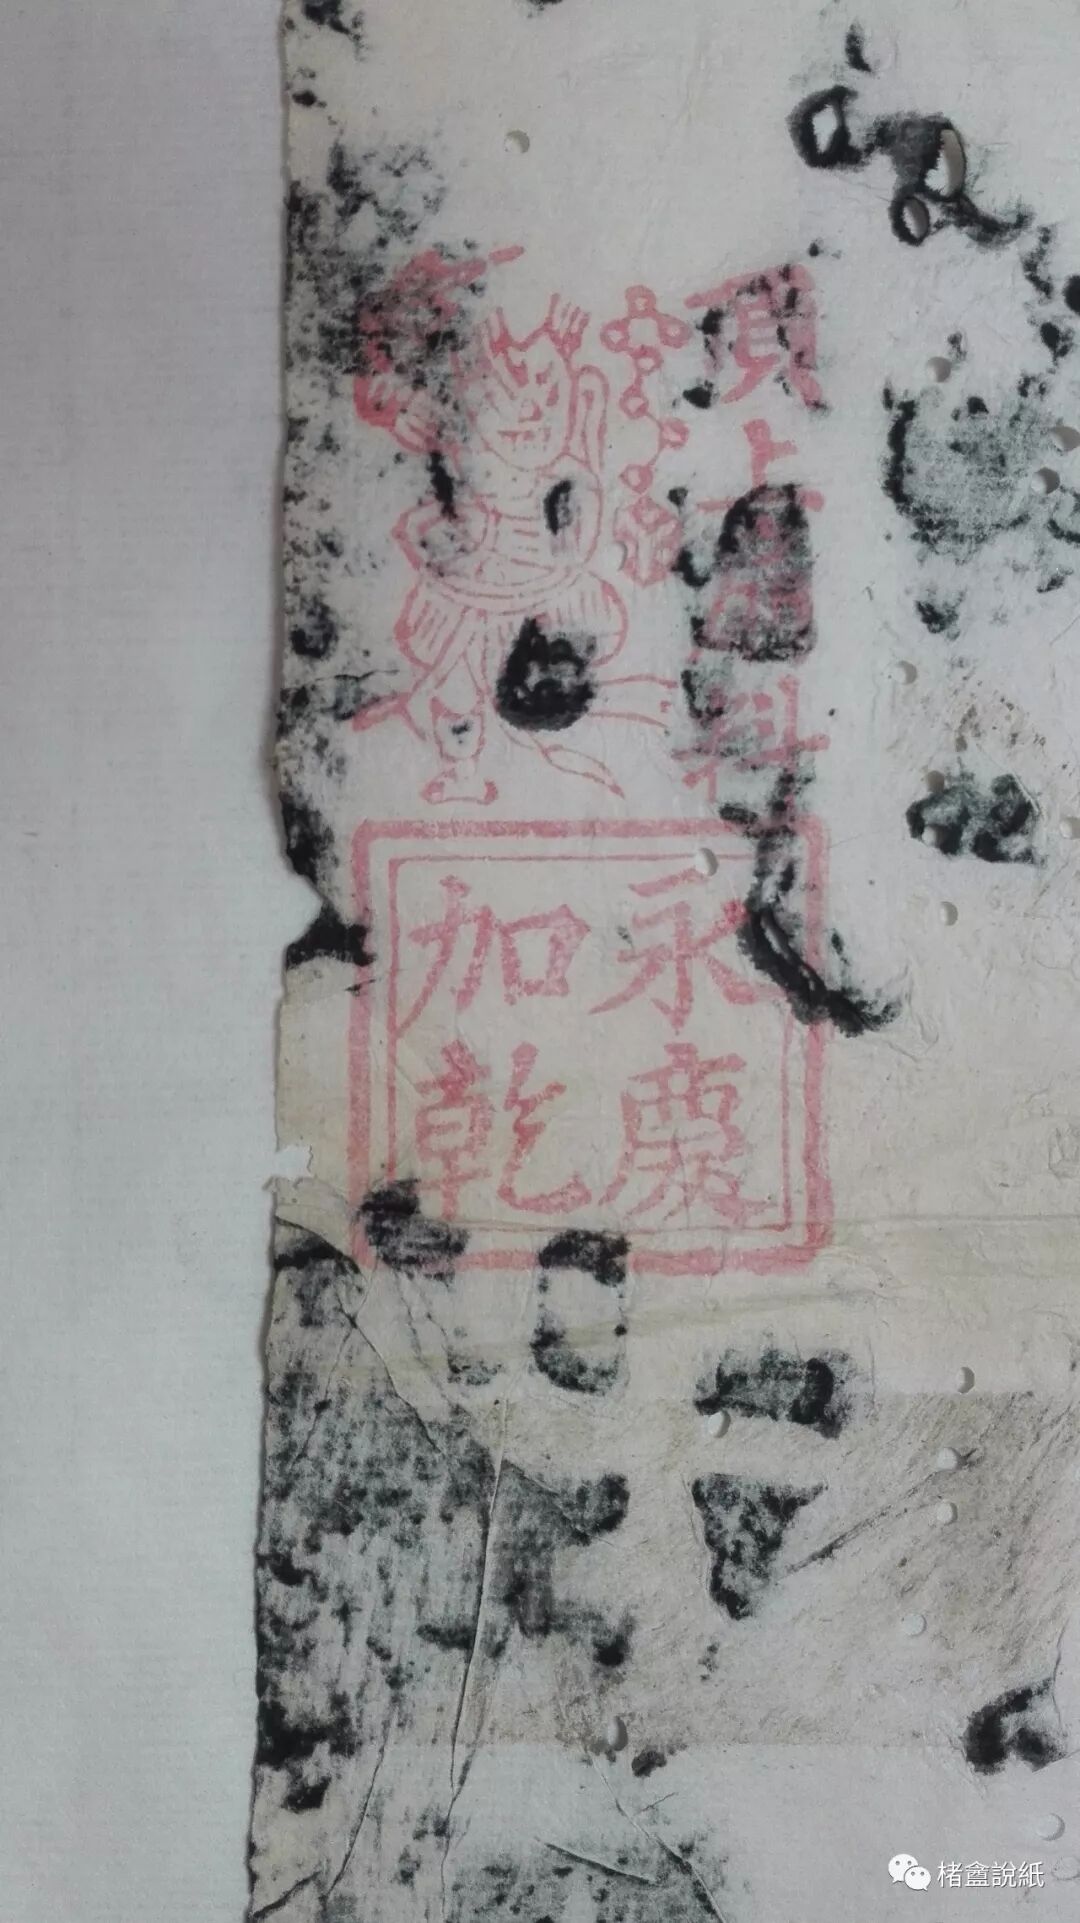 頂上料
永慶
加乾
楮盦說紙